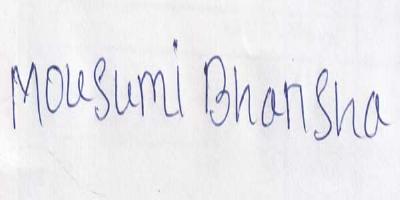 Mousumi Bhansha